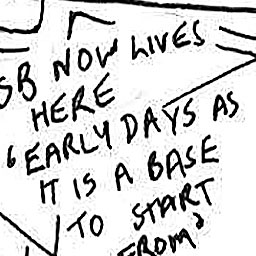 SB NOW LIVES
HERE
'EARLY DAYS AS
IT IS A BASE
TO START
FROM'